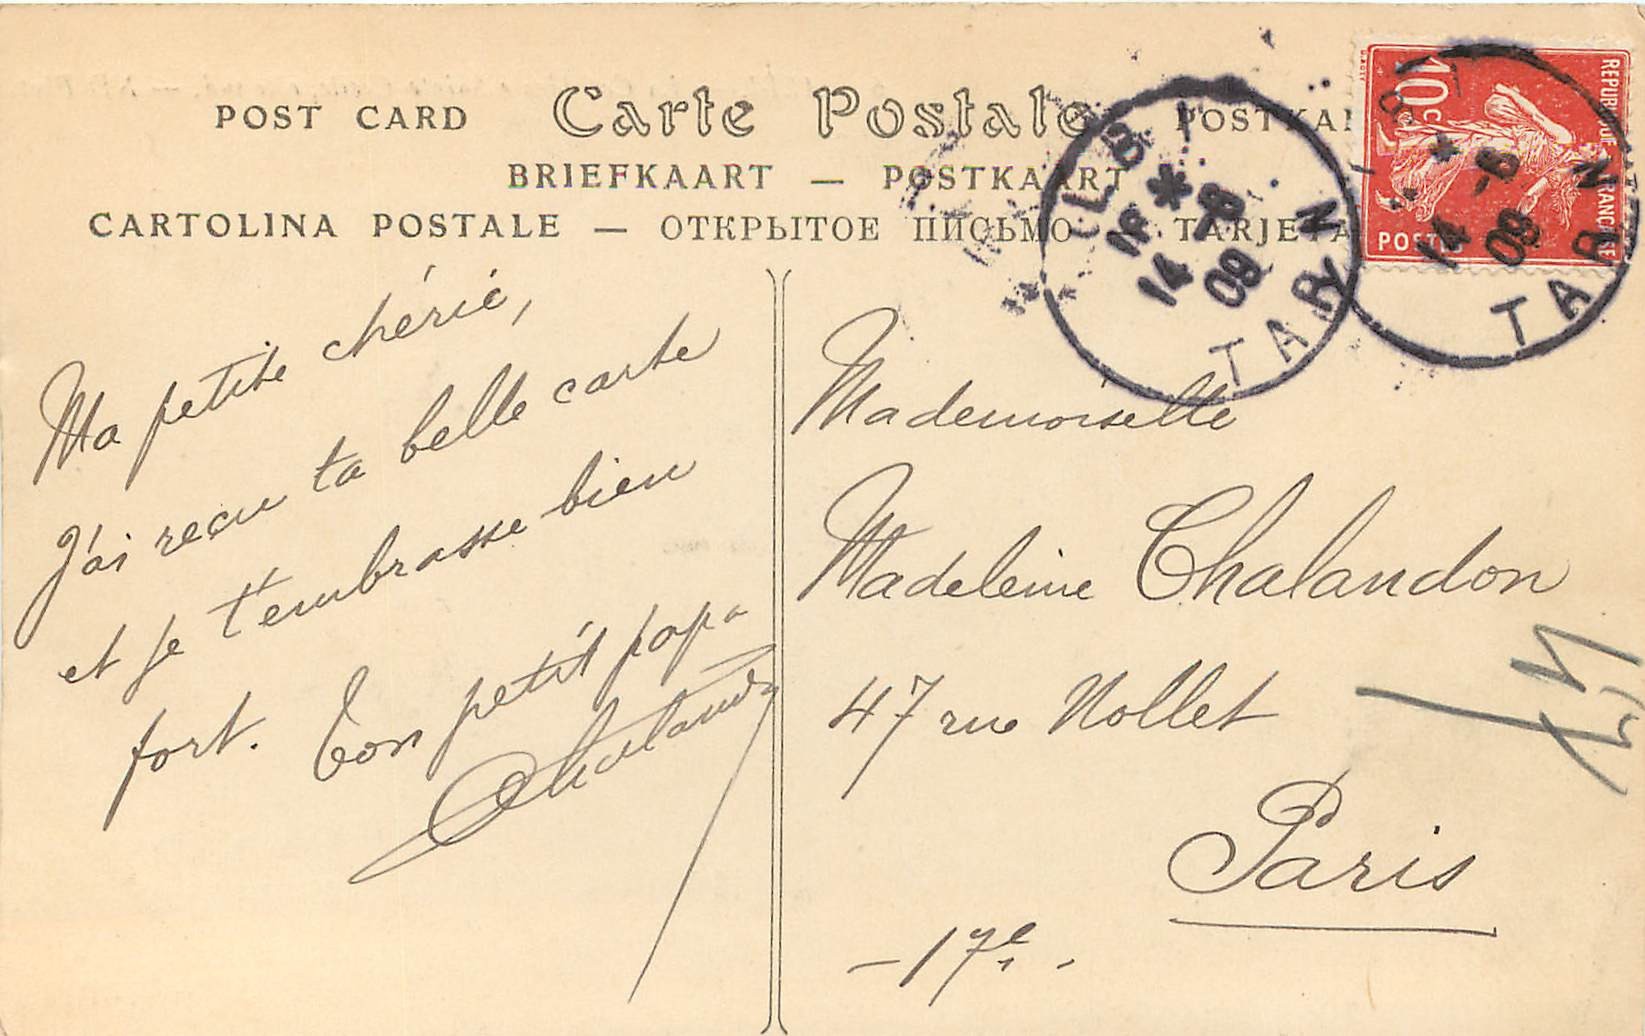 POST CARD Carte Postale
BRIEFKAART — POSTKAART
CARTOLINA POSTALE — ОТКРЫТОЕ ПИСЬМО — TARJETA
REPUBLIQUE FRANCAISE
10c
POSTES
ALBI
1E *
14 -8
09
TARN
14 -8
09
TARN
Ma petite chérie,
J'ai reçu ta belle carte
et je t'embrasse bien
fort. Ton petit papa
Chalandon
Mademoiselle
Madeleine Chalandon
47 rue Nollet
Paris
- 17e. -